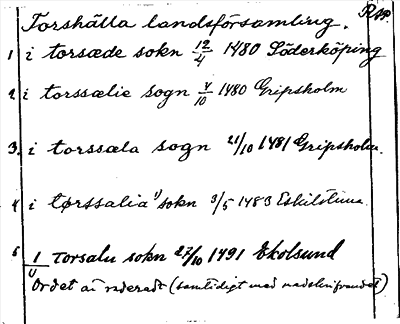 Torshälla landsförsamling. RAp.
1 i torsæde sokn 12/4 1480 Söderköping
2. i torssælie sogn 4/10 1480 Gripsholm
3. i torssæla sogn 21/10 1481 Gripsholm.
4 i tørssalia 1) sokn 3/5 1483 Eskilstuna
5 i torsalu sokn 27/10 1491 Ekolsund
1) Ordet är raderadt (samtidigt med nedskrifvandet)